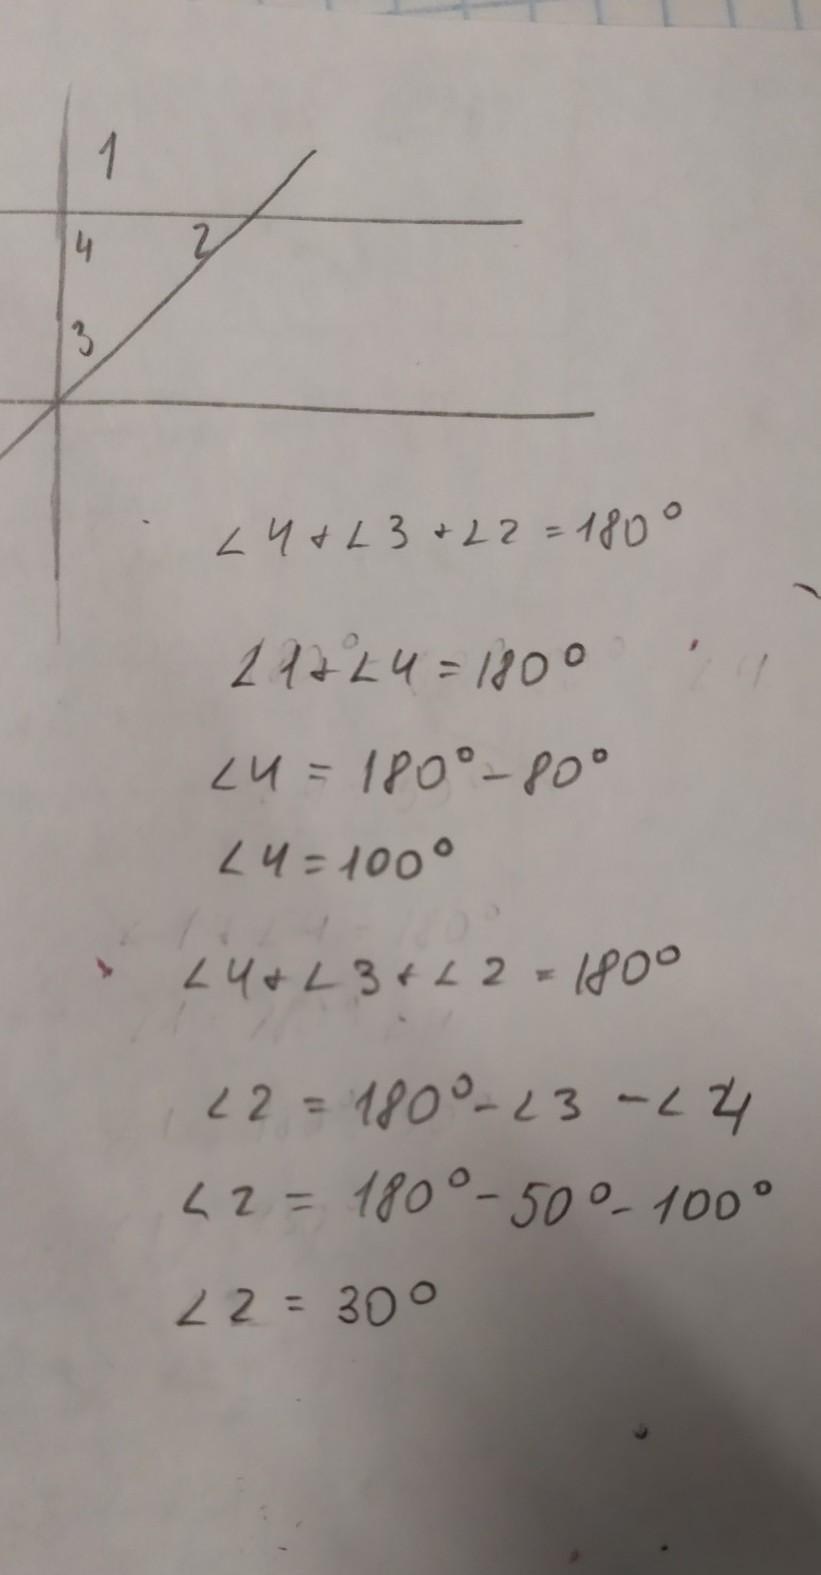 1
4
2
3
∠4+∠3+∠2=180°
∠1+∠4=180°
∠4=180°-80°
∠4=100°
∠4+∠3+∠2=180°
∠2=180°-∠3-∠4
∠2=180°-50°-100°
∠2=30°